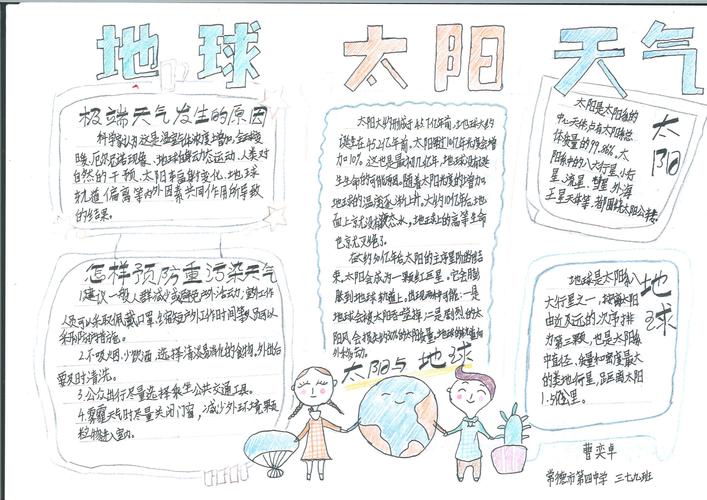 地球 太阳 天气
极端天气发生的原因
科学家认为这是温室气体浓度增加,全球变
暖、厄尔尼诺现象、地球自身动态运动、人类对
自然的干预、太阳辐射变化、地球
轨道偏离等内外因素共同作用所导致
的结果。
怎样预防重污染天气
1.建议一般人群减少或避免户外活动;室外工作
人员可以采取佩戴口罩、缩短户外工作时间等
采取防护措施。
2.不吸烟,少饮酒,选择清淡易消化的食物,外出后
要及时清洗。
3.公众出行尽量选择乘坐公共交通工具。
4.雾霾天气时尽量关闭门窗,减少外环境颗
粒物进入室内。
太阳大约形成于45.7亿年前,地球大约
诞生在45.4亿年前,太阳每过10亿年光度会增加
10%。这也是最初10亿年,地球没有诞
生生命的可能原因。随着太阳光度的增加
地球的温度逐渐上升,大约10亿年后地
面上就没有液态水,地球上的高等生命
也就灭绝了。
在大约50亿年后太阳的主序星阶段结
束,太阳会成为一颗红巨星,它会膨
胀到地球轨道上,出现两种可能:一是
地球会被太阳吞噬掉,二是剧烈的太阳
风会
太阳与地球
太阳是太阳系的
中心天体,占有太阳系总
体质量的99.86%,太
阳系中的八大行星、小行
星、流星、彗星、外海
王星天体等,都围绕太阳公转。
太阳
地球是太阳系八
大行星之一,按离太阳
由近及远的次序排
为第三颗,也是太阳系
中直径、质量和密度最大
的类地行星,距离太阳
1.5亿公里。
地球
曹奕卓
常德市第四中学 三七九班